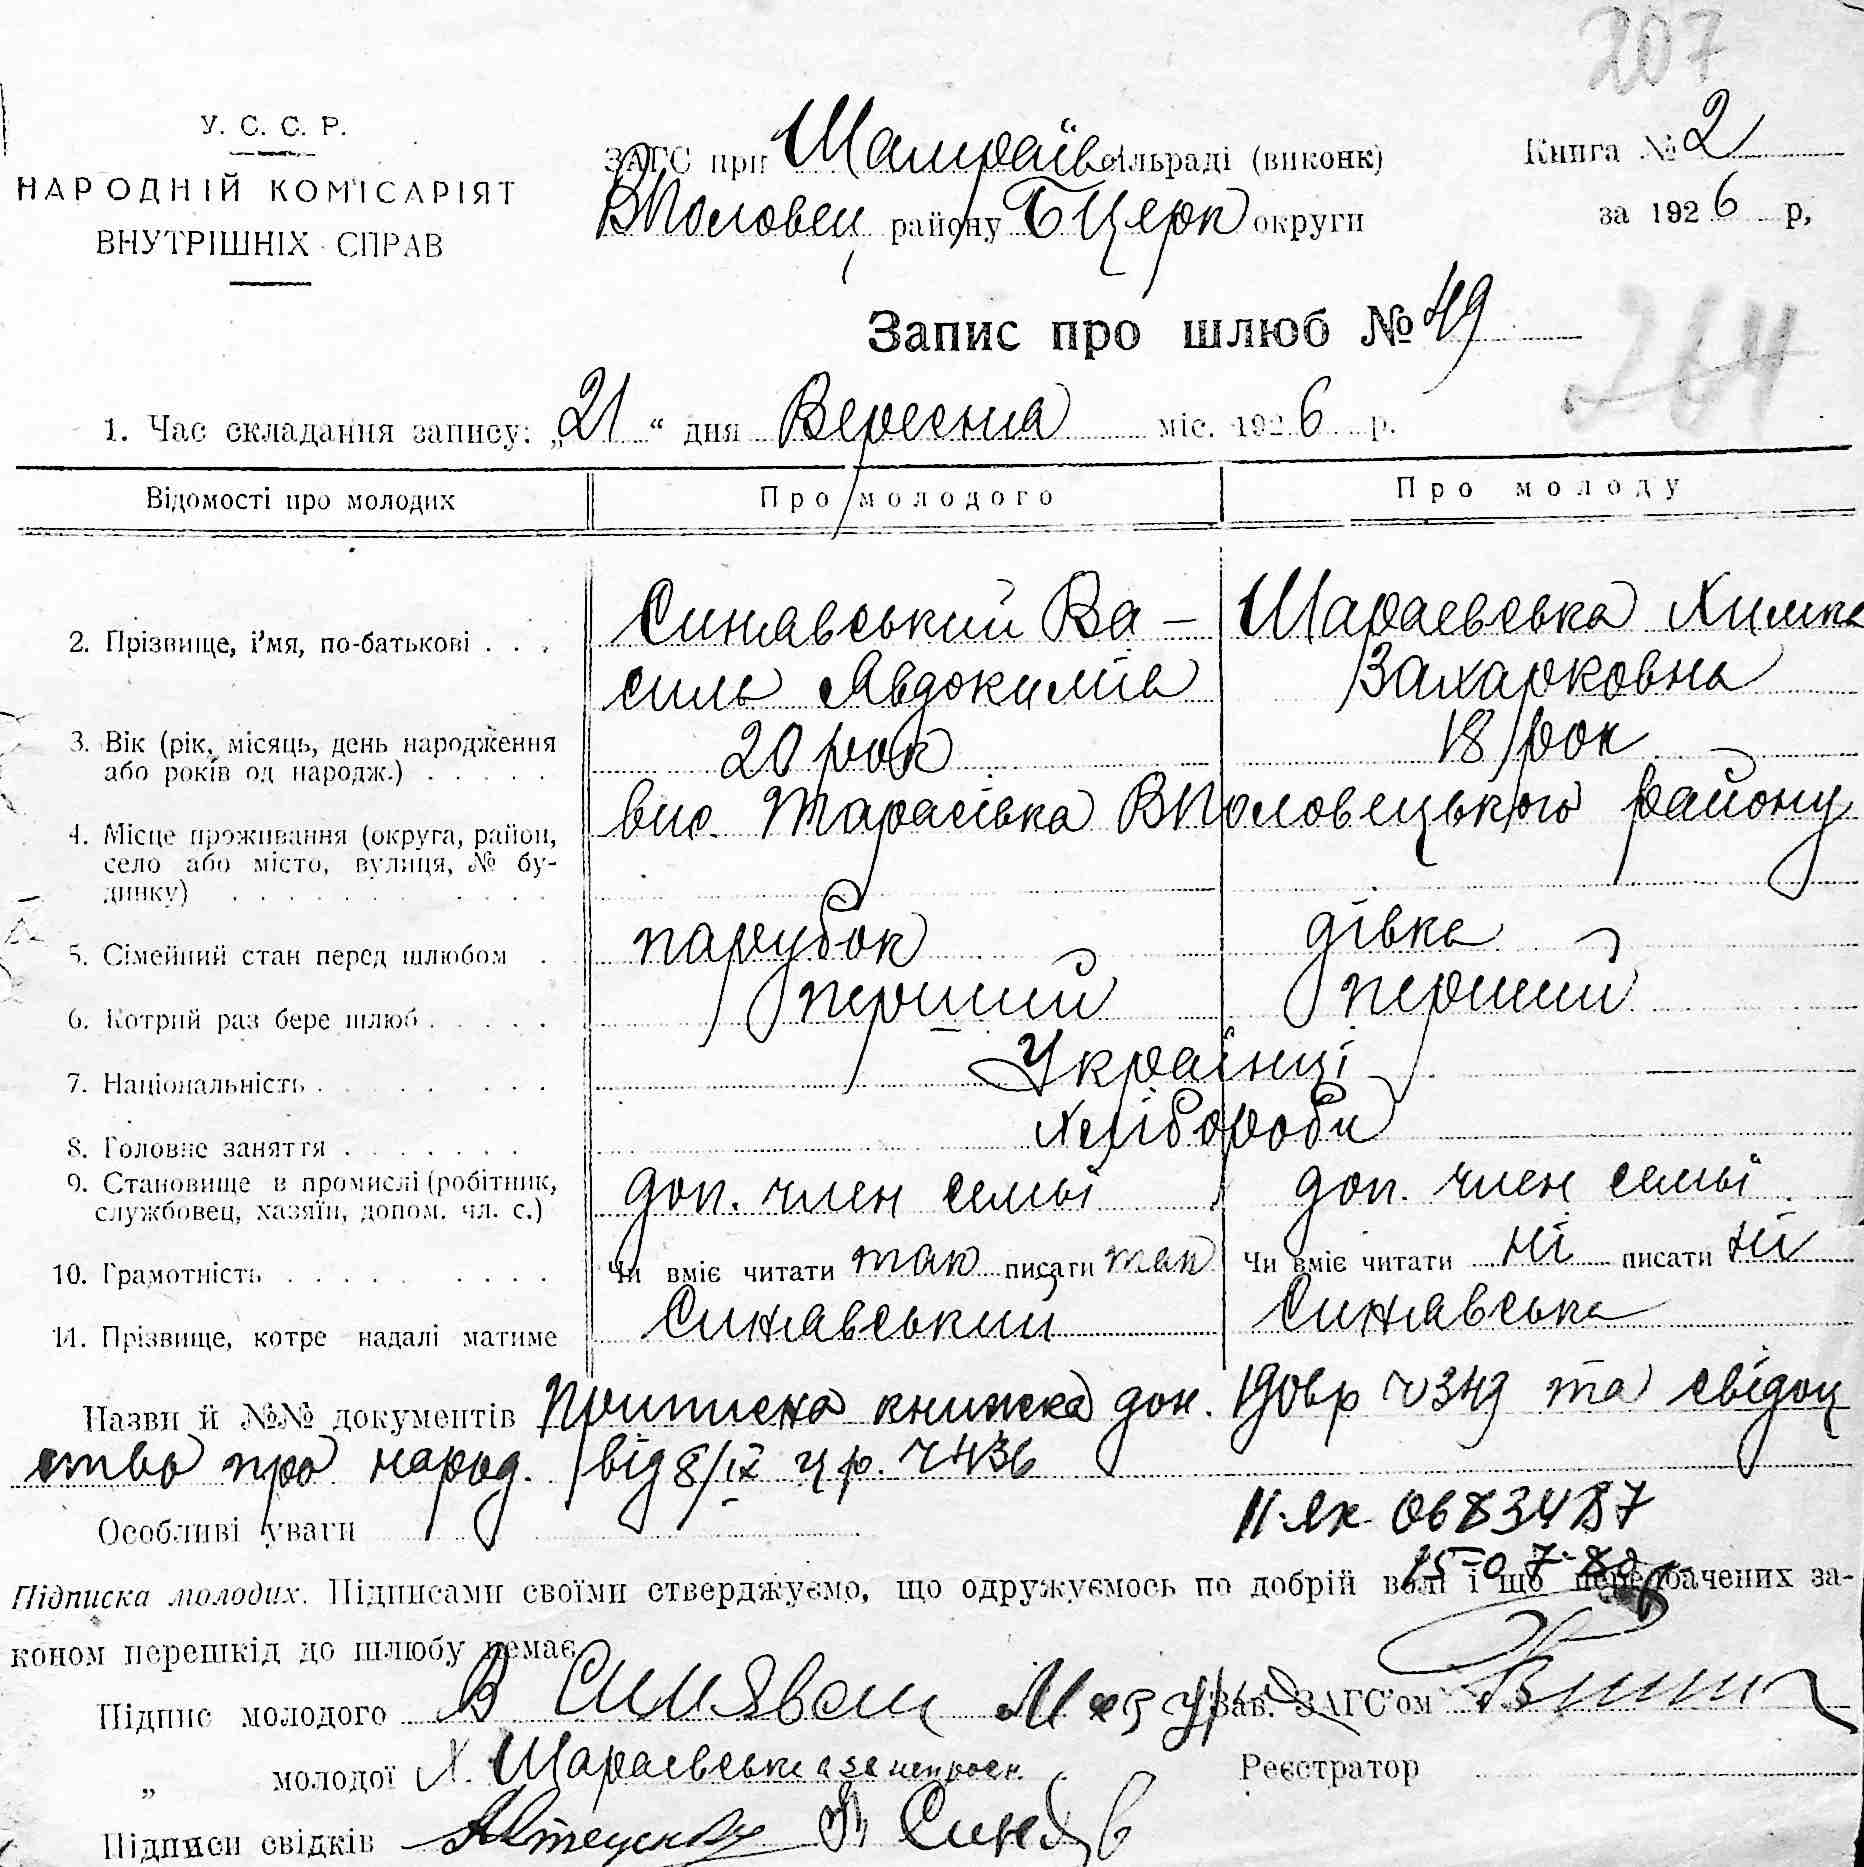 207
У. С. С. Р.
НАРОДНІЙ КОМІСАРІЯТ
ВНУТРІШНІХ СПРАВ
ЗАГС при Шамраїв сільраді (виконк)
ВПоловец району БЦерк округи
Книга № 2
за 1926 р,
Запис про шлюб № 49
264
1. Час складання запису: „21“ дня Вересня міс. 1926 р.
Відомості про молодих Про молодого Про молоду
2. Прізвище, і'мя, по-батькові . . . Синявський Ва- Шараевська Химка
силь Явдокимів Захарковна
3. Вік (рік, місяць, день народження 20 рок 18 рок
або років од народж.) . . . . .
4. Місце проживання (округа, район, вис. Тарасівка ВПоловецького району
село або місто, вулиця, № бу-
динку) . . . . . . . . . .
5. Сімейний стан перед шлюбом . парубок дівка
6. Котрий раз бере шлюб . . . . . перший перший
7. Національність . . . . . . . . Українці
8. Головне заняття . . . . . . . Хлібороби
9. Становище в промислі (робітник, доп. член семьі доп. член семьі
службовец, хазяїн, допом. чл. с.)
10. Грамотність . . . . . . . . . Чи вміє читати так писати так Чи вміє читати ні писати ні
11. Прізвище, котре надалі матиме Синявський Синявська
Назви й №№ документів Приписна книжка дон. ч 349 та свідоц
ство про народ. від 8/IX ц р. ч 436
Особливі уваги
15-07-80
Підписка молодих. Підписами своїми стверджуємо, що одружуємось по добрій волі і що передбачених за-
коном перешкід до шлюбу немає
Підпис молодого В Синявски Зав. ЗАГС'ом
„ молодої Х. Шараевська Реєстратор
Підписи свідків Синяв